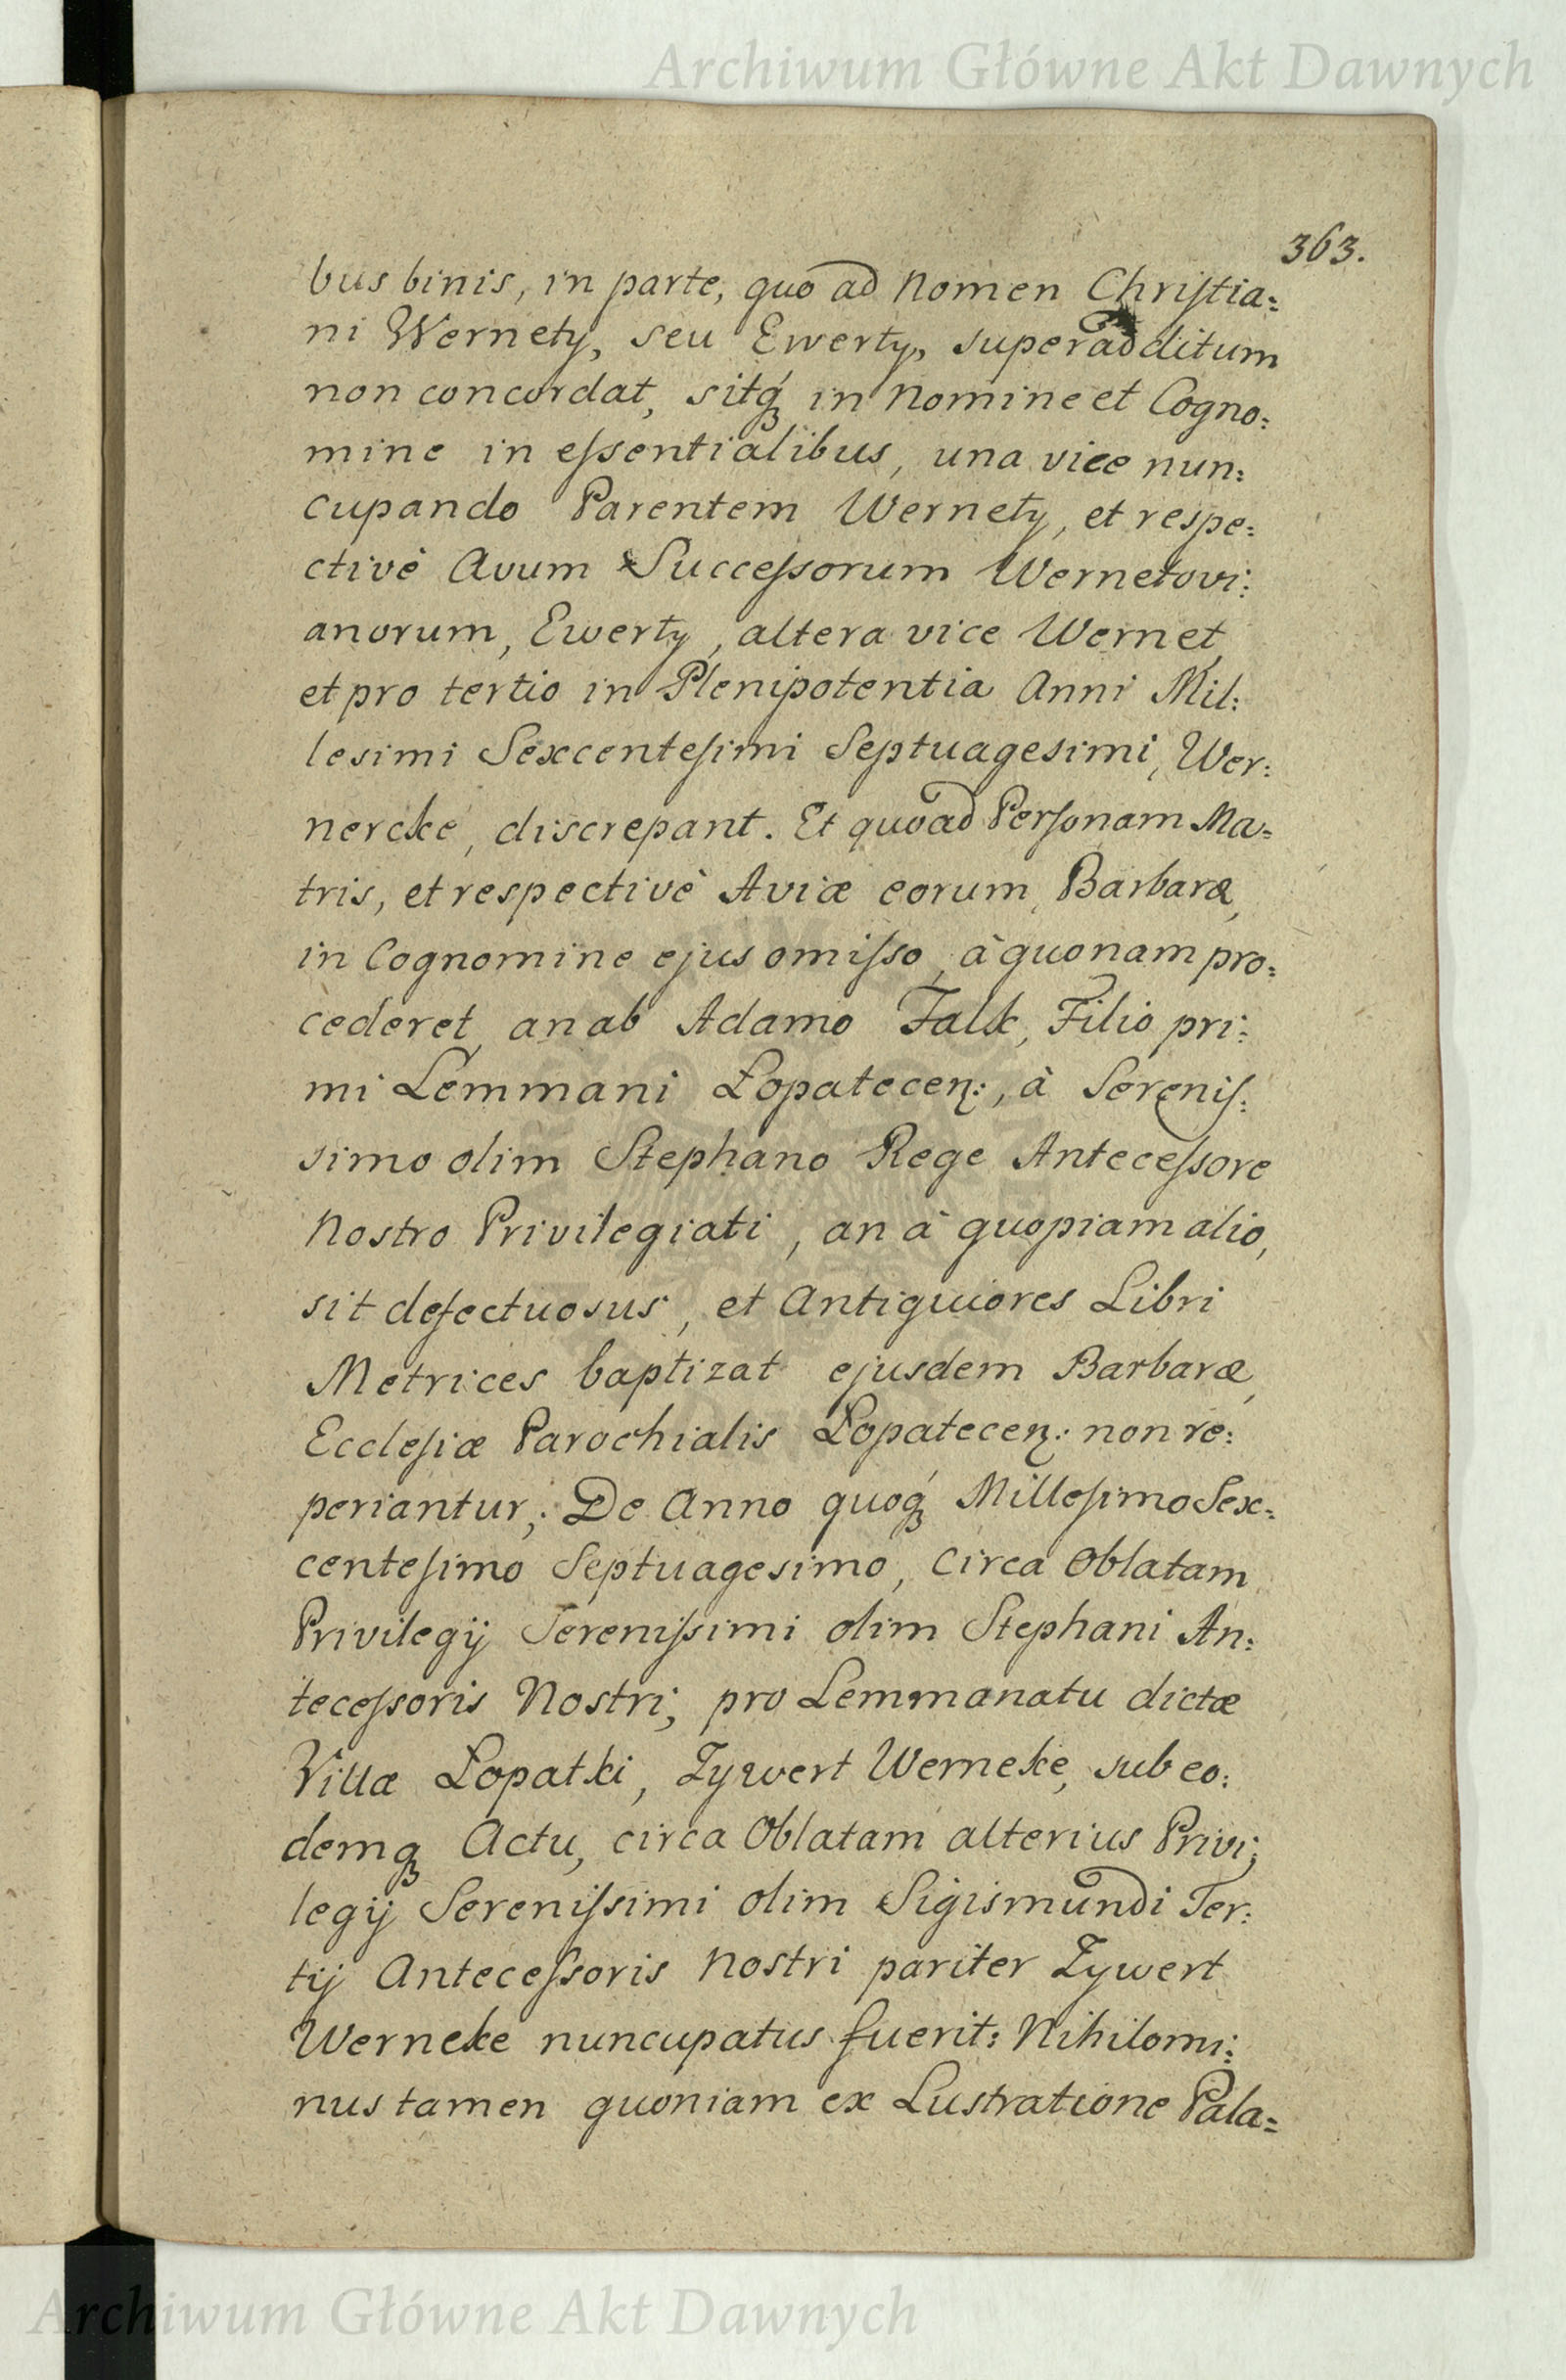 Archiwum Główne Akt Dawnych
363.
bus binis, in parte, quo ad Nomen Christia:
ni Wernety, seu Ewerty, superadditum
non concordat, sitq́ in Nomine et Cogno:
mine in essentialibus, una vice nun:
cupando Parentem Wernety, et respe:
ctivè Avum Successorum Wernetovi:
anorum, Ewerty, altera vice Wernet,
et pro tertio in Plenipotentia Anni Mil:
lesimi Sexcentesimi Septuagesimi, Wer:
nercke, discrepant. Et quoad Personam Ma:
tris, et respectivè Aviæ eorum, Barbaræ,
in Cognomine ejus omisso, à quonam pro:
cederet, an ab Adamo Falk, Filio pri:
mi Lemmani Łopatecen:, à Serenis:
simo olim Stephano Rege Antecessore
Nostro Privilegiati, an à quopiam alio,
sit defectuosus, et Antiquiores Libri
Metrices baptizat ejusdem Barbaræ,
Ecclesiæ Parochialis Łopatecen: non re:
periantur; De Anno quoq́ Millesimo Sex:
centesimo Septuagesimo, Circa Oblatam
Privilegij Serenissimi olim Stephani An:
tecessoris Nostri; pro Lemmanatu dictæ
Villæ Łopatki, Zywert Werneke, sub eo:
demq Actu, circa Oblatam alterius Privi:
legij Serenissimi olim Sigismundi Ter:
tij Antecessoris Nostri pariter Zywert
Werneke nuncupatus fuerit: Nihilomi:
nus tamen quoniam ex Lustratione Pala:
Archiwum Główne Akt Dawnych